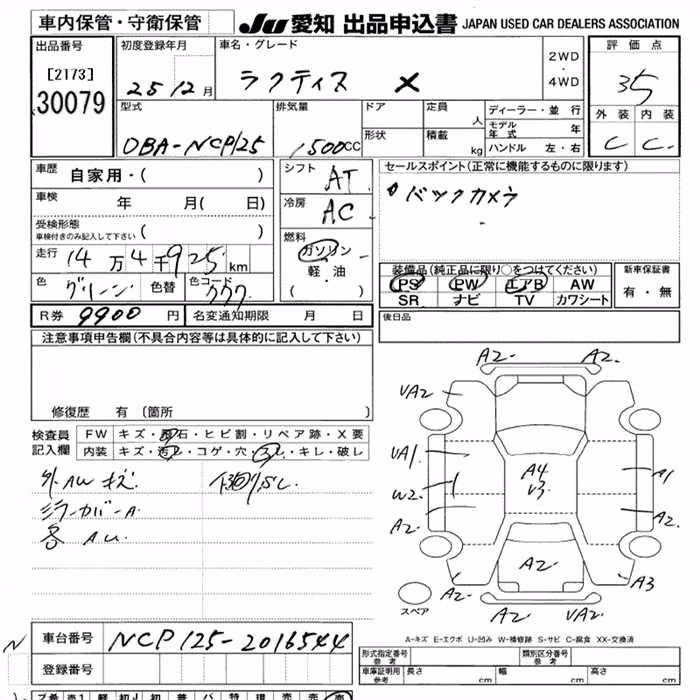 車内保管・守衛保管
JU 愛知 出品申込書 JAPAN USED CAR DEALERS ASSOCIATION
出品番号
[2173]
30079
初度登録年月
25 12 月
車名・グレード
ラクティス X
2WD
・
4WD
評価点
3.5
外装 内装
C C
型式
DBA-NCP125
排気量
1500CC
ドア
形状
定員 人
積載 kg
ディーラー・並行
モデル年式 年
ハンドル 左・右
車歴 自家用・( )
車検 年 月( 日)
受検形態
車検付きのみ記入して下さい ( )
走行 14万4千925km
色 グリーン 色替 色コード
シフト AT
冷房 AC
燃料
ガソリン
軽・油
( )
セールスポイント(正常に機能するものに限ります)
バックカメラ
装備品(純正品に限り○をつけてください)
PS PW エアB AW
SR ナビ TV カワシート
新車保証書
有・無
R券 9900 円 名変通知期限 月 日
後日品
注意事項申告欄(不具合内容等は具体的に記入して下さい)
修復歴 有(箇所 )
検査員記入欄
FW キズ・飛石・ヒビ割・リペア跡・X要
内装 キズ・汚レ・コゲ・穴・スレ・キレ・破レ
外AWキズ
ミラーカバーA
各AU
A2 A2
VA2
VA1
W2
A2
A4
V3
A1
A2
A2
A2
A3
VA2 VA2
スペア
A-キズ E-エクボ U-凹み W-補修跡 S-サビ C-腐食 XX-交換済
車台番号 NCP125-2016544
登録番号
N
型式指定番号 参考
類別区分番号 参考
車庫証明用 参考 長さ cm 幅 cm 高さ cm